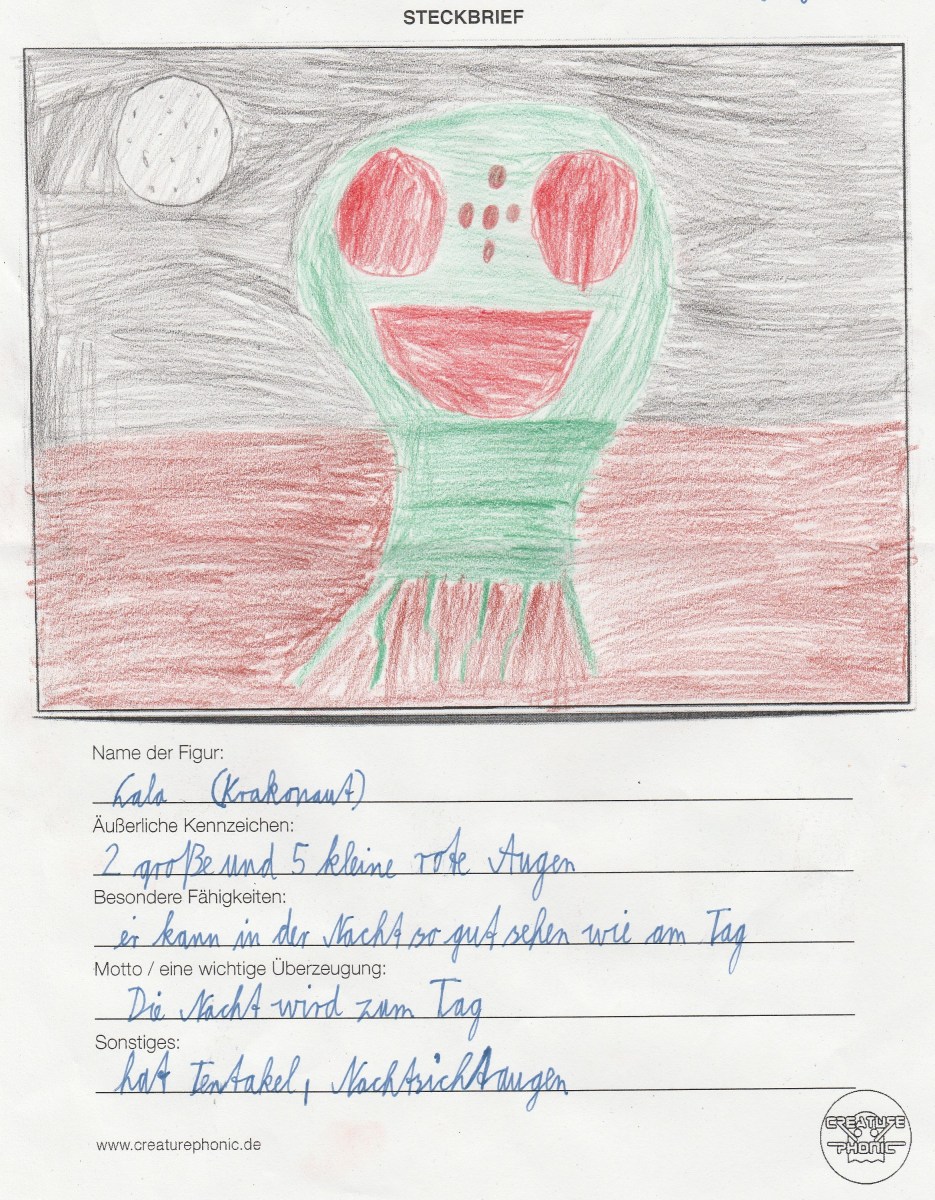 STECKBRIEF
Name der Figur:
Lala (Krakonaut)
Äußerliche Kennzeichen:
2 große und 5 kleine rote Augen
Besondere Fähigkeiten:
er kann in der Nacht so gut sehen wie am Tag
Motto / eine wichtige Überzeugung:
Die Nacht wird zum Tag
Sonstiges:
hat Tentakel, Nachtsichtaugen
www.creaturephonic.de
CREATURE
PHONIC